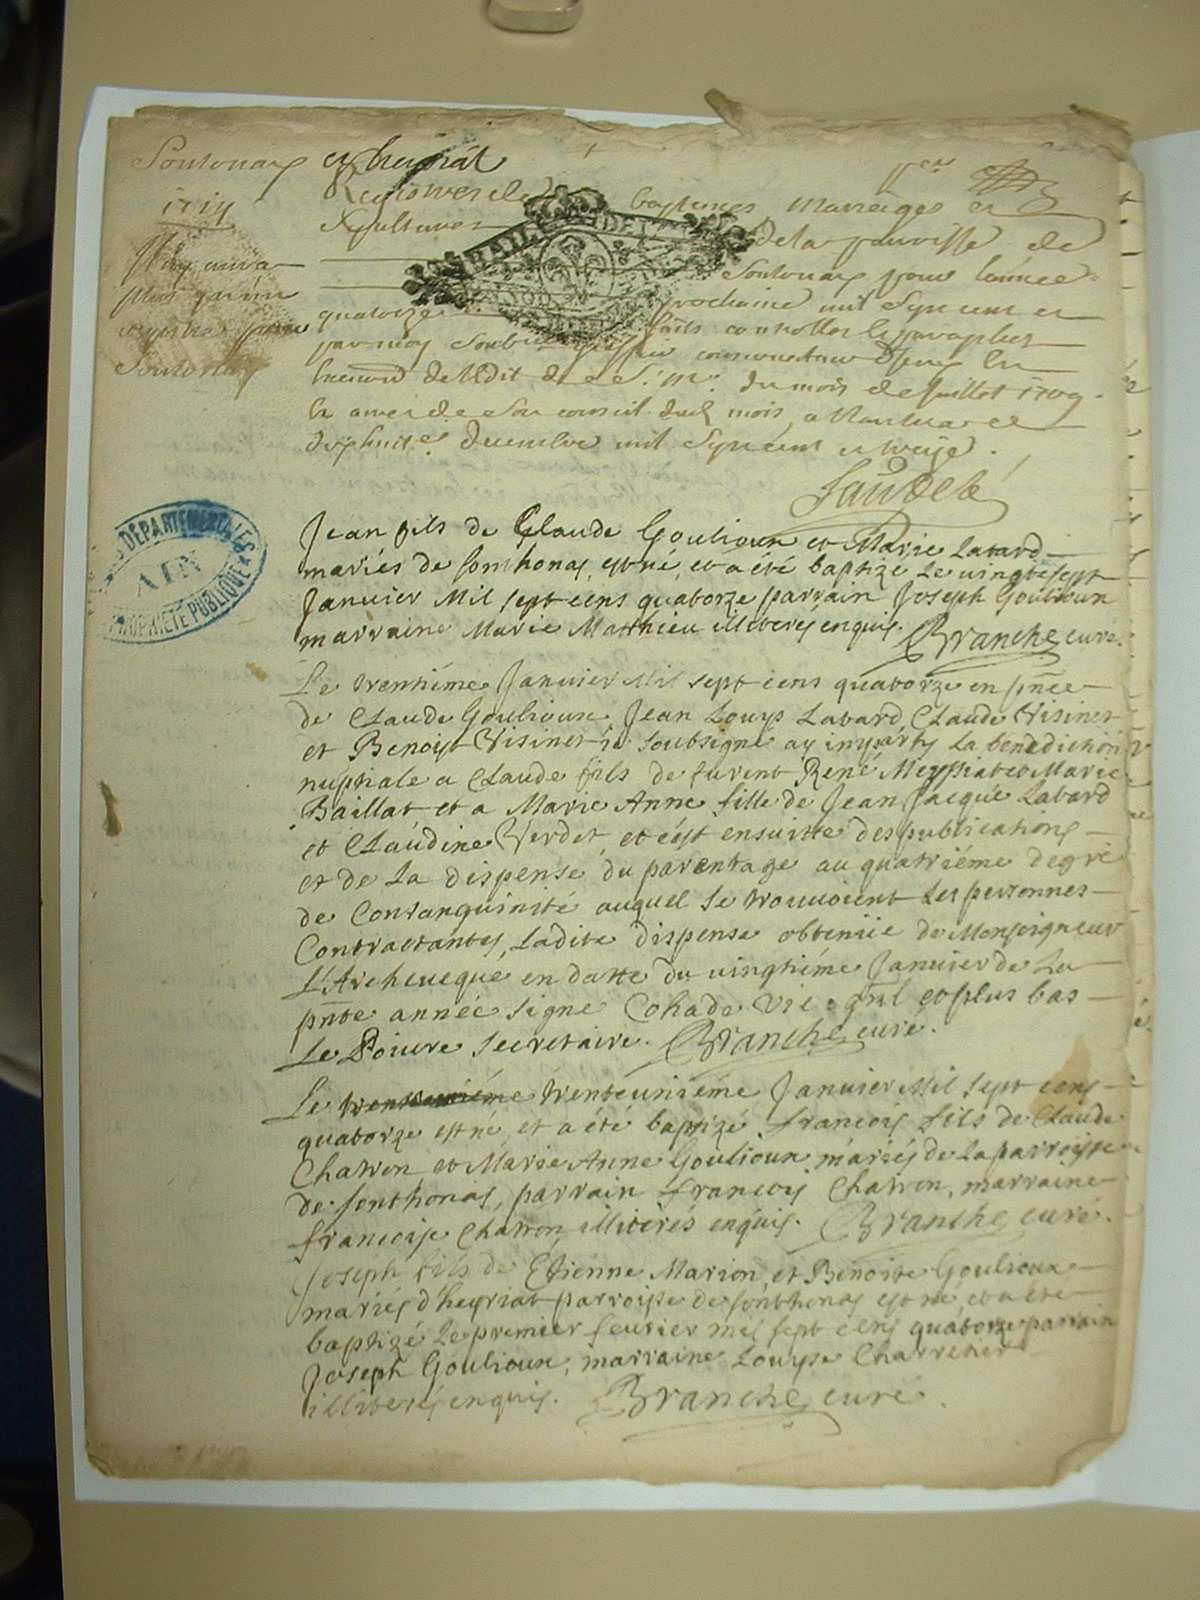 Sontonay et heyriat
1714
Registres de baptemes Mariages et
Sepultures de la parroisse de
Sontonay pour l'année
prochaine mil Sept cent et
quatorze
par moy
du mois de Juillet 1709
de son conseil dud mois a Nantua ce
dixhuit e decembre mil Sept cent et treize.
DEPARTEMENTALES
AIN
PROPRIÉTÉ PUBLIQUE
Jean fils de Claude Goulioux et Marie Labard
mariés de sonthonas, est né, et a été baptizé le vingtesept
Janvier Mil sept cens quatorze parrain Joseph Goulioux
marraine Marie Matthieu illiterés enquis. Branche curé.
Le trentiéme Janvier Mil sept cens quatorze en pñce
de Claude Goulioux, Jean Louys Labard, Claude Visinet
et Benoist Visinet je soubsigné ay imparty la benediction
nuptiale a Claude fils de furent René Meyssiat et Marie
Baillat et a Marie Anne fille de Jean Jacque Labard
et Claudine Verdet, et c'est ensuitte des publications
et de la dispense du parentage au quatriéme degré
de Consanguinité auquel se trouvoient les personnes
Contractantes, ladite dispense obtenüe de Monseigneur
L'Archeveque en datte du vingtiéme Janvier de la
pñte année signé Cohade vic: gñl et plus bas
Le Poivre secretaire. Branche curé.
Le trenteuniéme Janvier Mil sept cens
quatorze est né, et a été baptizé françois fils de Claude
Chatron et Marie Anne Goulioux mariés de la parroisse
de sonthonas, parrain françois Chatron, marraine
françoise Chatron illiterés enquis. Branche curé.
Joseph fils de Etienne Marion, et Benoite Goulioux
mariés d'heyriat parroisse de sonthonas est né, et a été
baptizé le premier fevrier mil sept cens quatorze parrain
Joseph Goulioux, marraine Louyse Charretier
illiterés enquis. Branche curé.